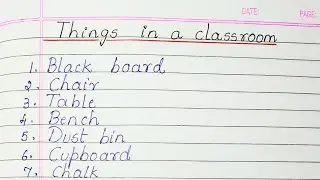 DATE:
PAGE:
Things in a classroom
1. Black board
2. Chair
3. Table
4. Bench
5. Dust bin
6. Cupboard
7. Chalk